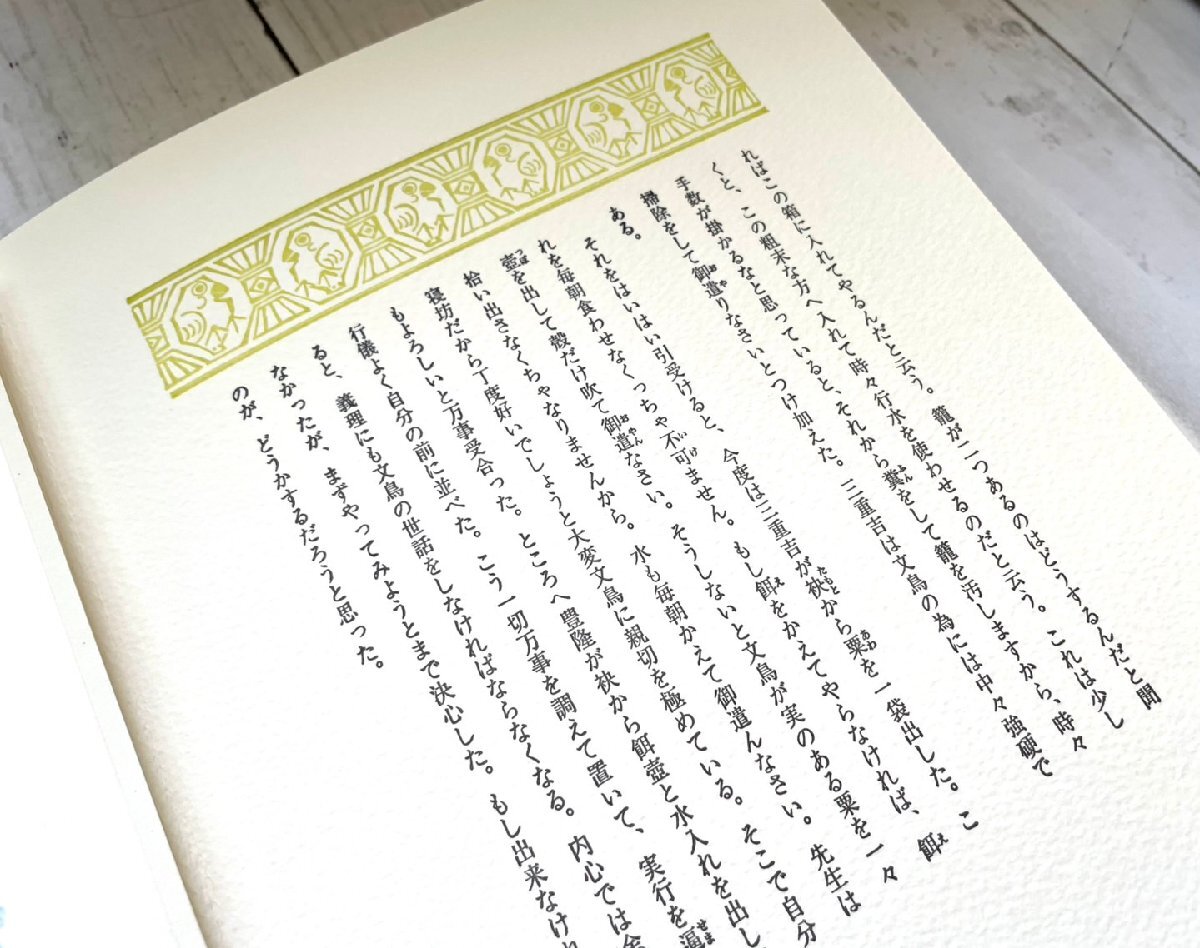 ればこの箱に入れてやるんだと云う。籠が二つあるのはどうするんだと聞
くと、この粗末な方へ入れて時々行水を使わせるのだと云う。これは少し
手数が掛かるなと思っていると、それから糞をして籠を汚しますから、時々
掃除をして御遣りなさいとつけ加えた。三重吉は文鳥の為には中々強硬で
ある。
それをはいはい引受けると、今度は三重吉が袂から粟を一袋出した。こ
れを毎朝食わせなくっちゃ不可ません。もし餌をかえてやらなければ、餌
壺を出して殻だけ吹て御遣なさい。そうしないと文鳥が実のある粟を一々
拾い出さなくちゃなりませんから。水も毎朝かえて御遣んなさい。先生は
寝坊だから丁度好いでしょうと大変文鳥に親切を極めている。そこで自分
もよろしいと万事受合った。ところへ豊隆が袂から餌壺と水入れを出し
行儀よく自分の前に並べた。こう一切万事を調えて置いて、実行を逼
ると、義理にも文鳥の世話をしなければならなくなる。内心では
なかったが、まずやってみようとまで決心した。もし出来なけれ
のが、どうかするだろうと思った。